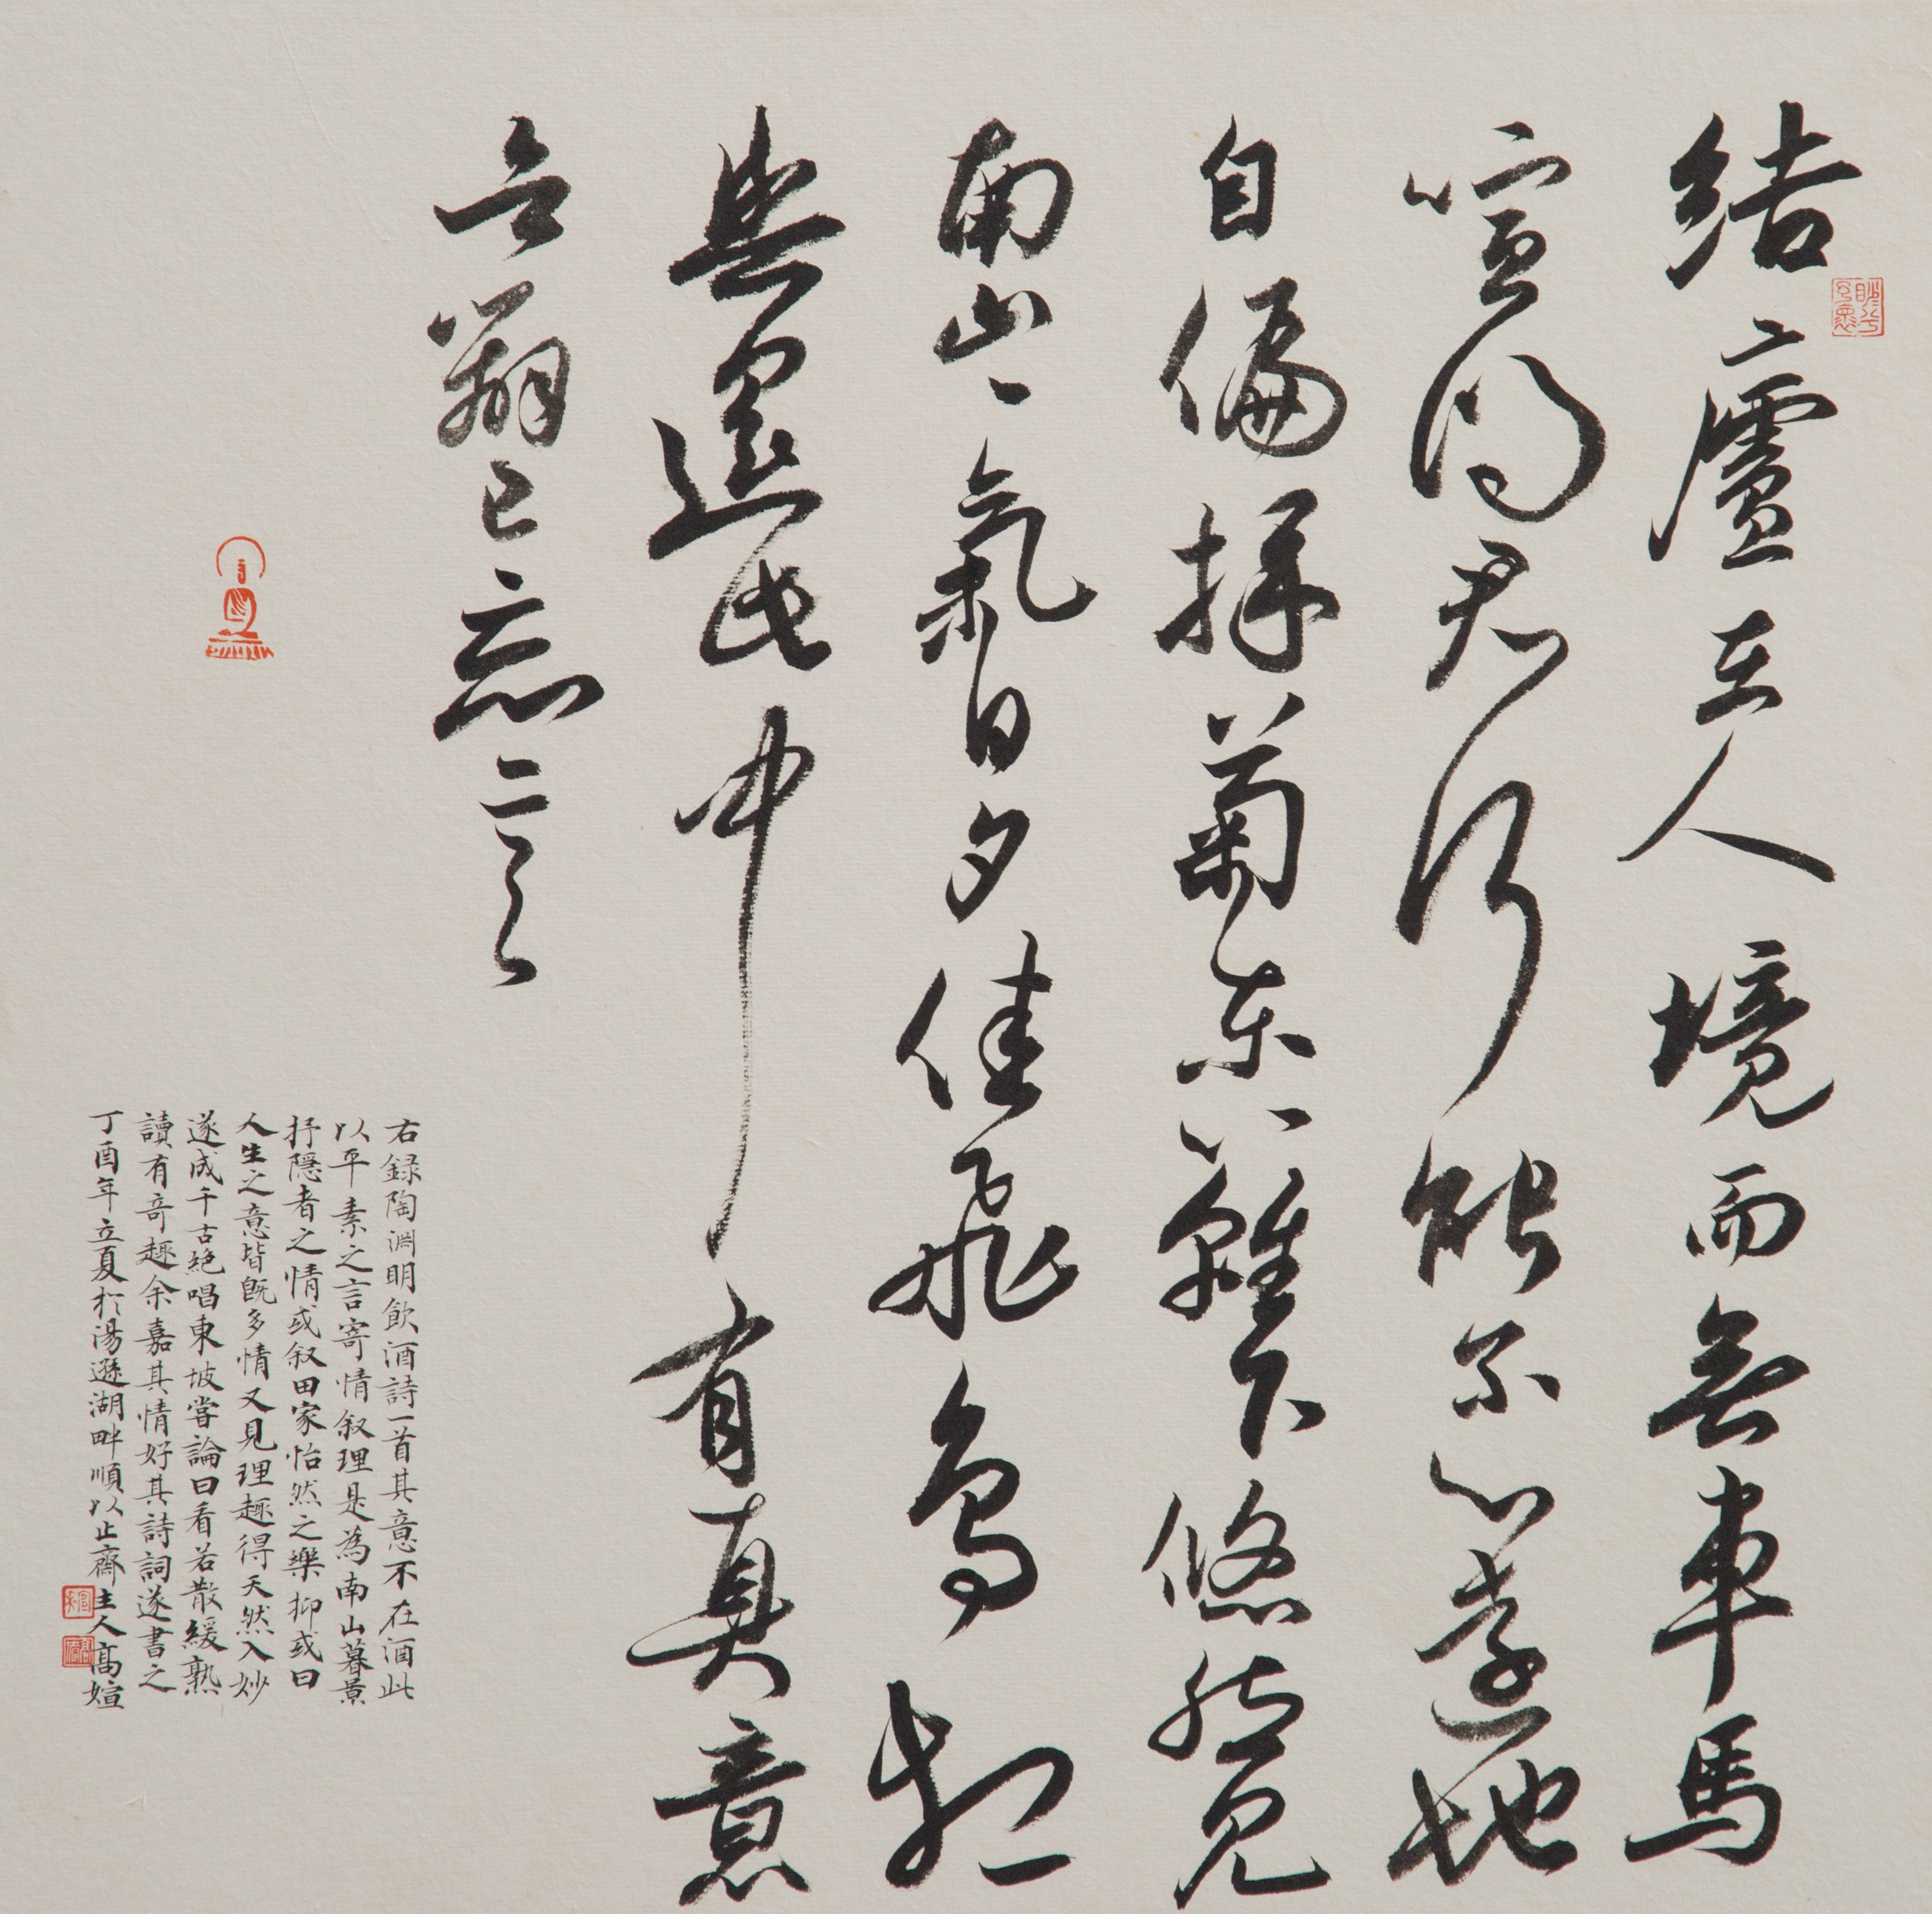 結廬在人境而無車馬
喧問君何能尔心遠地
自偏採菊東籬下悠然見
南山山氣日夕佳飛鳥相
與還此中有真意
欲辯已忘言
右録陶淵明飲酒詩一首其意不在酒此
以平素之言寄情叙理是為南山暮景
抒隱者之情或叙田家怡然之樂抑或曰
人生之意皆既多情又見理趣得天然入妙
遂成千古絶唱東坡嘗論曰看若散緩熟
讀有奇趣余嘉其情好其詩詞遂書之
丁酉年立夏於湯遜湖畔順以止齋主人高媗